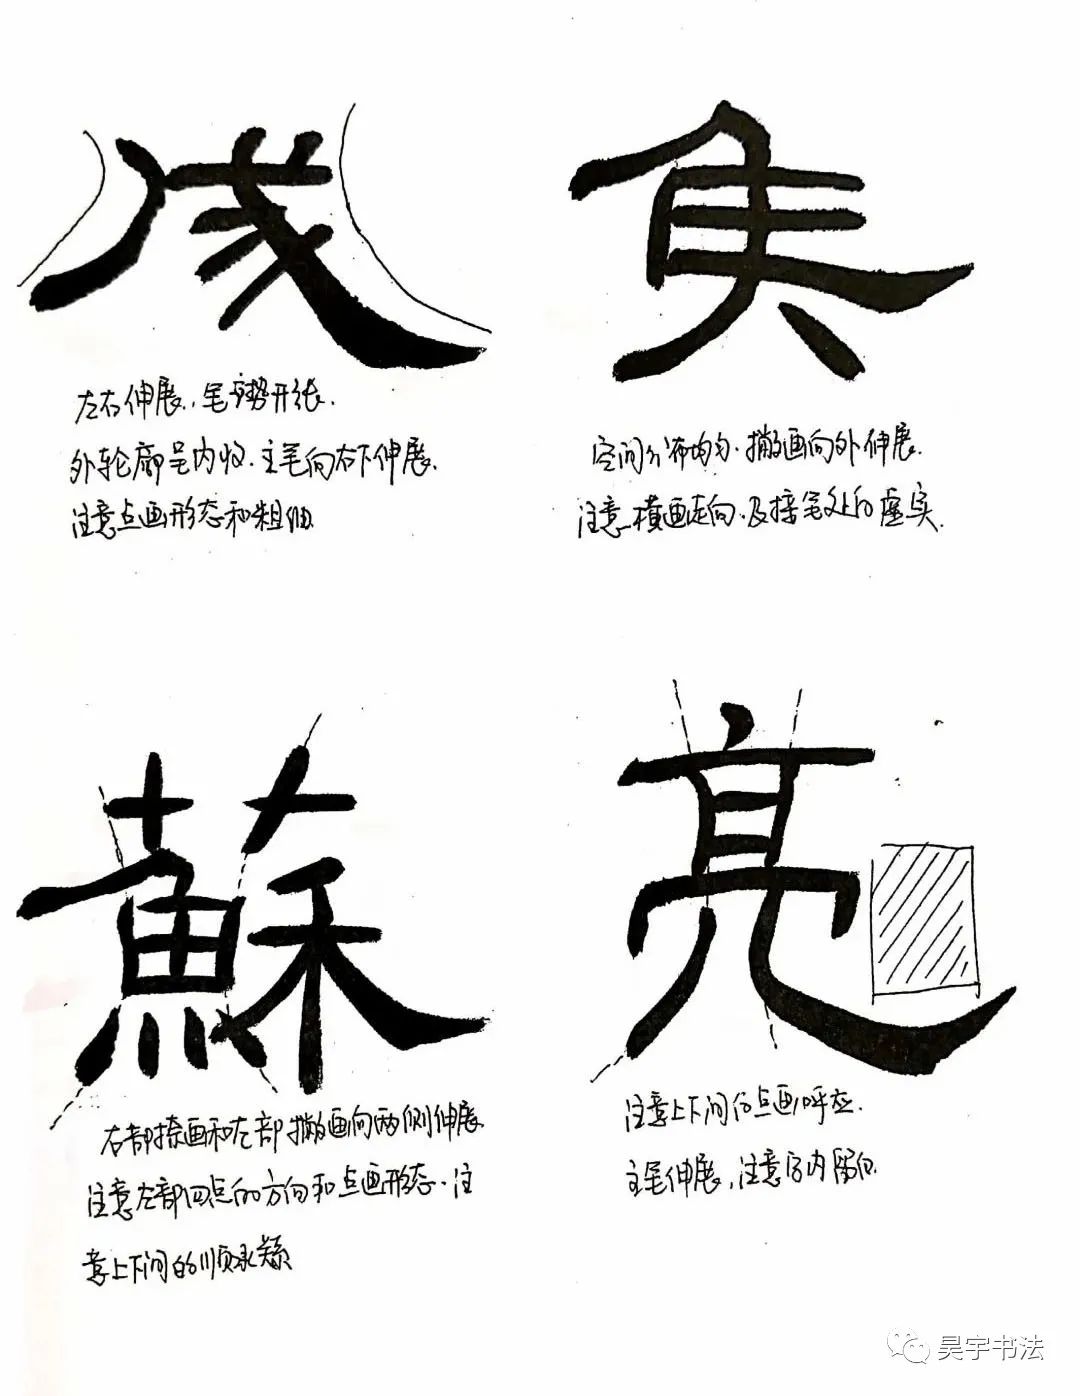 左右伸展，笔势开张.
外轮廓呈内收.主笔向右下伸展.
注意点画形态和粗细
空间分布均匀.撇画向外伸展.
注意横画走向.及接笔处的虚实.
蘇
右部捺画和左部撇画向两侧伸展
注意左部四点的方向和点画形态.注
意上下间的顺承关系
亮
注意上下间的点画呼应.
主笔伸展，注意字内留白.
昊宇书法